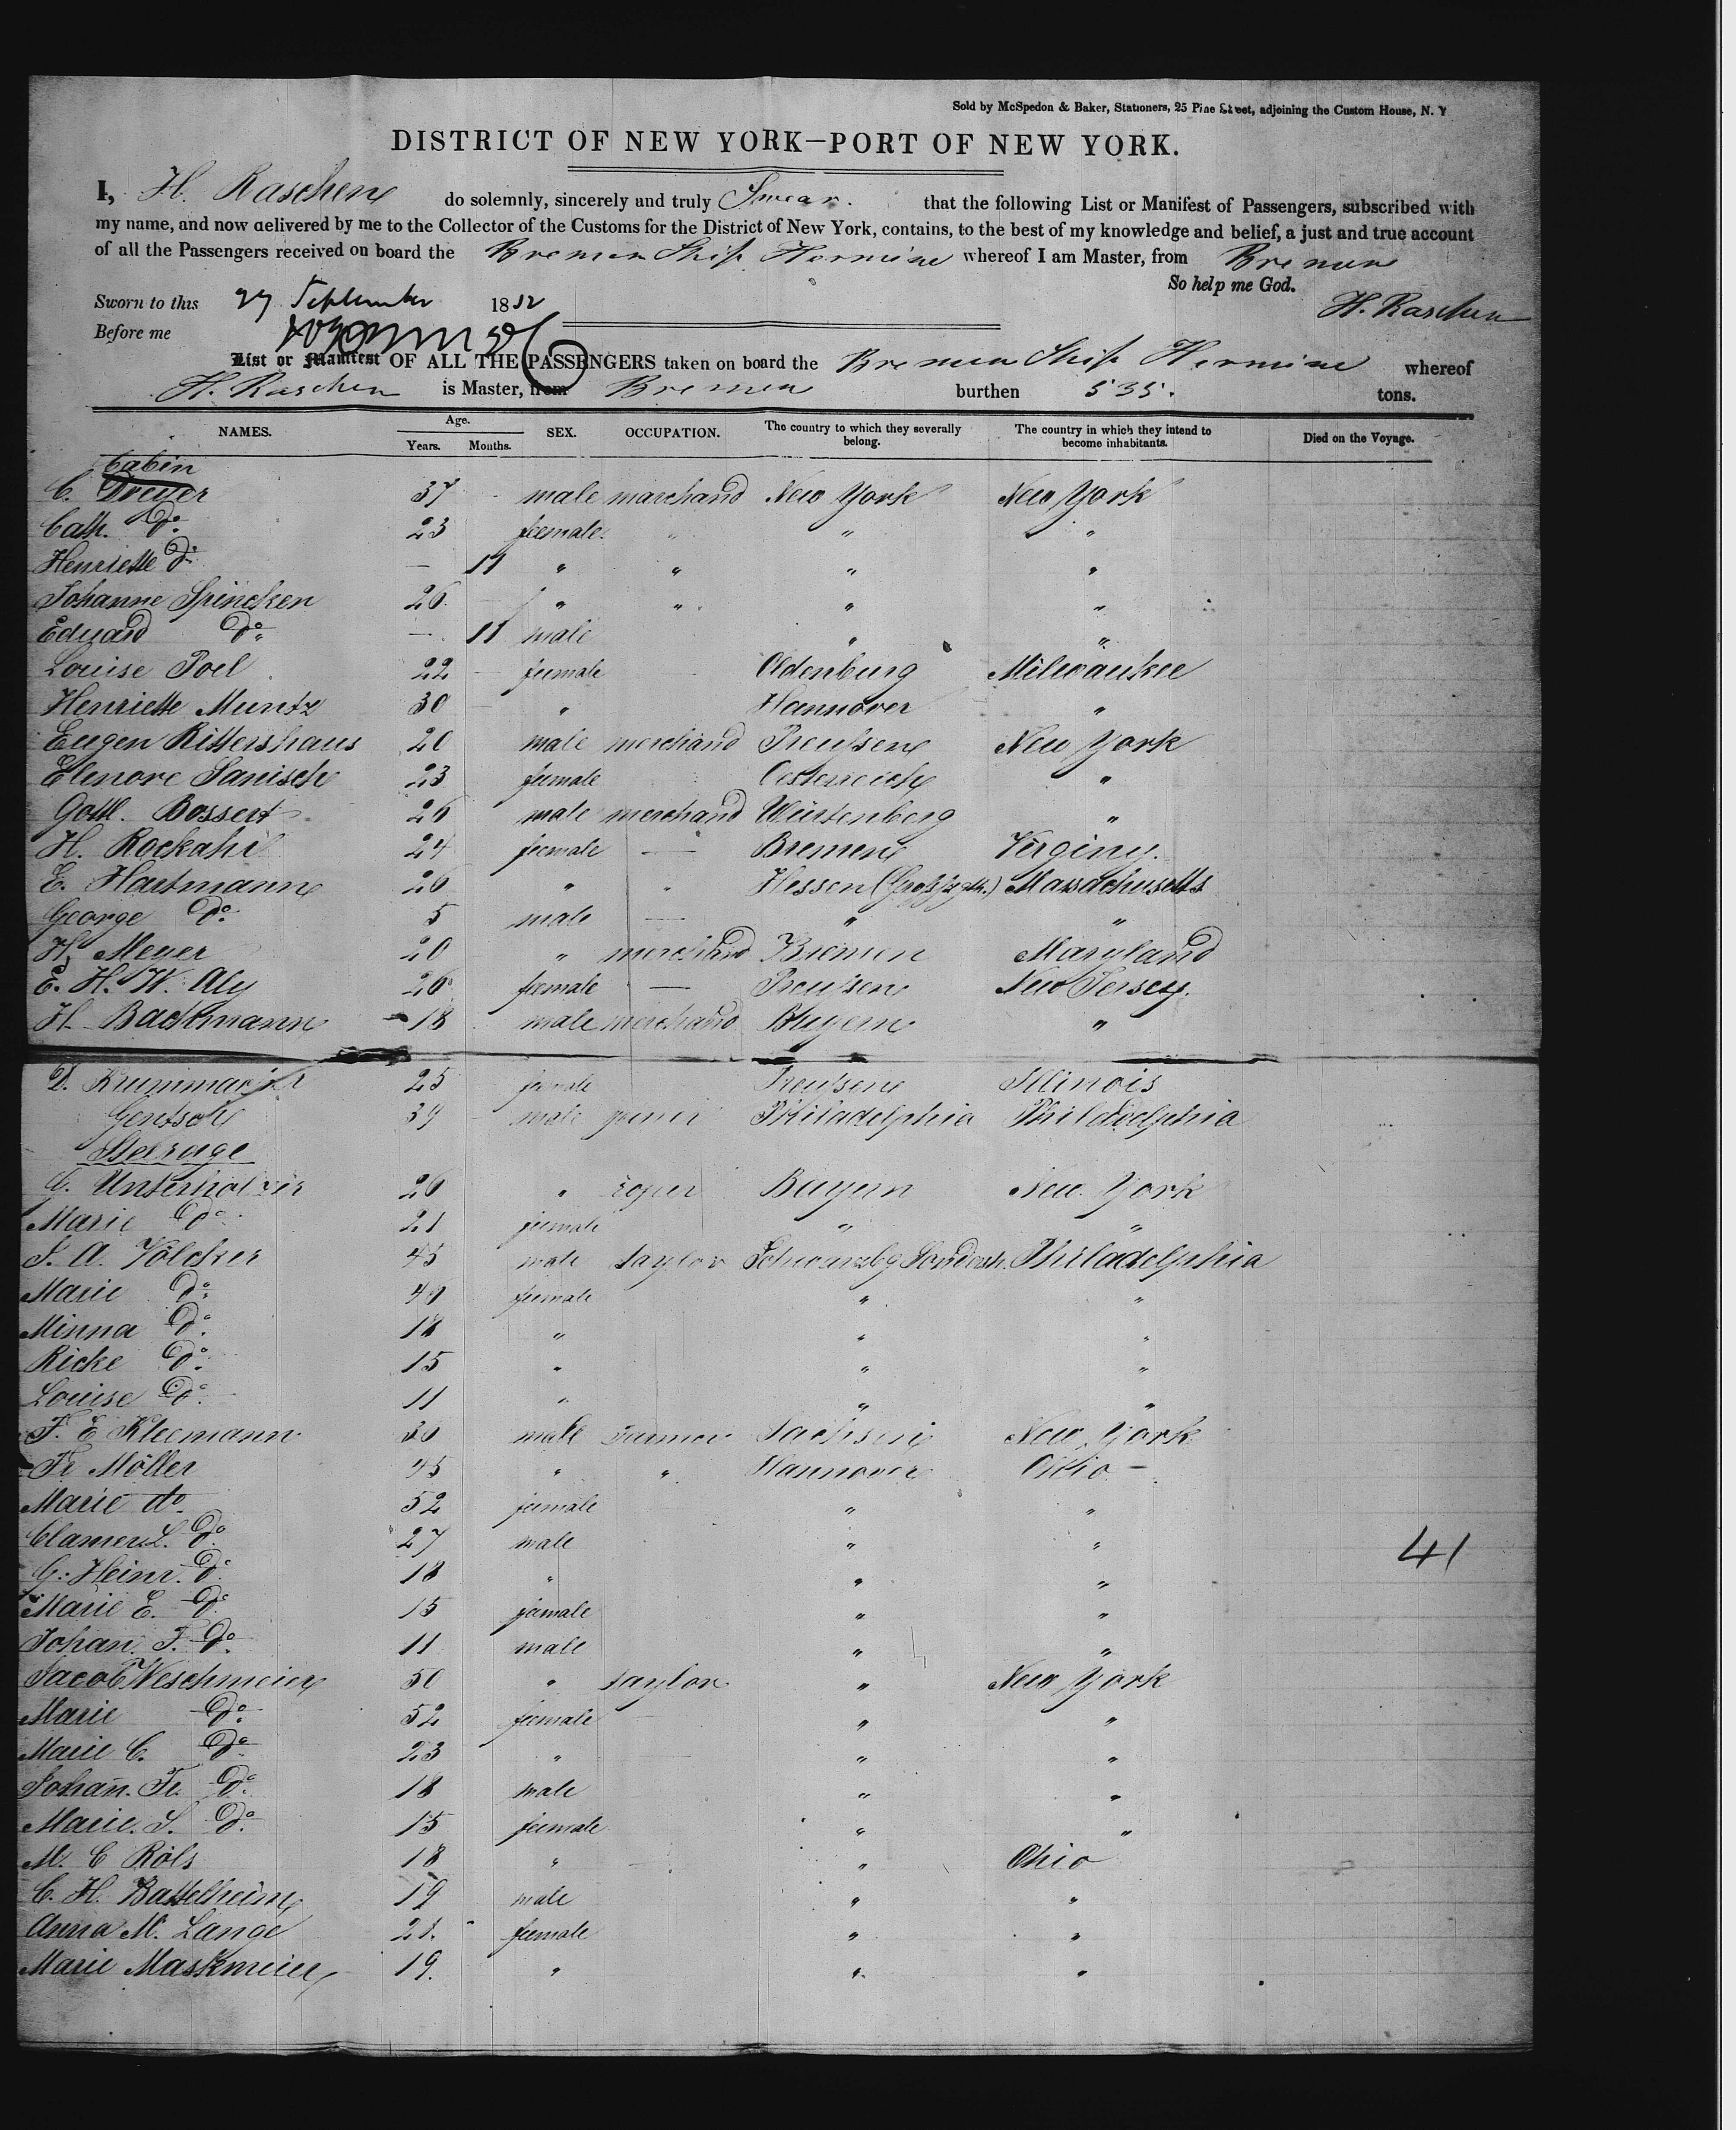 Sold by McSpedon & Baker, Stationers, 25 Pine Street, adjoining the Custom House, N. Y
DISTRICT OF NEW YORK—PORT OF NEW YORK.
I, H. Raschen do solemnly, sincerely and truly Swear. that the following List or Manifest of Passengers, subscribed with
my name, and now delivered by me to the Collector of the Customs for the District of New York, contains, to the best of my knowledge and belief, a just and true account
of all the Passengers received on board the Bremen Ship Hermine whereof I am Master, from Bremen
So help me God.
Sworn to this 27 September 1852 H. Raschen
Before me
List or Manifest OF ALL THE PASSENGERS taken on board the Bremen Ship Hermine whereof
H. Raschen is Master, from Bremen burthen 535. tons.
NAMES. Age. Years. Months. SEX. OCCUPATION. The country to which they severally belong. The country in which they intend to become inhabitants. Died on the Voyage.
Cabin
C. Dreyer 37 - male marchand New York New York
Cath. Do 23 feemale " " "
Henriette Do — 11 " " " "
Johanne Spincken 26 — " " " "
Eduard Do — 11 male " "
Louise Poel 22 — feemale Oldenburg Milwaukee
Henriette Muntz 30 — " Hannover "
Eugen Rittershaus 20 male merchand Preußen New York
Elenore Janisch 23 feemale Oesterreich "
Gottl. Bossert 26 male merchand Würtenberg "
H. Rockahr 24 feemale — Bremen Verginy.
E. Hartmann 26 " " Hessen Massachusetts
George Do 5 male — " "
H. Meyer 20 " merchand Bremen Maryland
E. H. W. Aly 26 feemale — Preußen New Jersey.
H. Backmann 18 male merchand Bayern "
D. Krummacher 25 female Preußen Illinois
Gentsch 39 male Philadelphia Philadelphia
Steerage
G. 26 " Bayern New York
Marie Do 21 feemale " "
J. A. Völcker 45 male taylor Schwarzbg Sondersh. Philadelphia
Marie Do feemale " "
Minna Do 18 " " "
Ricke Do 15 " " "
Louise Do 11 " " "
F. E Kleemann 30 male Farmer Sachsen New York
Fr Möller 45 " " Hannover Ohio —
Marie do 52 feemale " "
Clamer L. Do 27 male " "
G: Heinr. Do 18 " " "
Marie E. Do 15 feemale " "
Johan F. Do 11 male " "
Jacob Weschmeier 50 " taylor " New York
Marie Do 52 feemale " "
Marie C. Do 23 " " "
Johan. Fr. Do 18 male " "
Marie. S. Do 15 feemale " "
M. C Röls 18 " " Ohio
C. H. Battelheim 19 male " "
Anna M. Lange 21. feemale " "
Marie Maskmeier 19. " " "
41